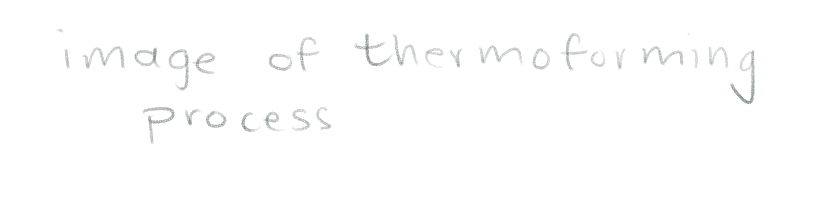 image of thermoforming
process